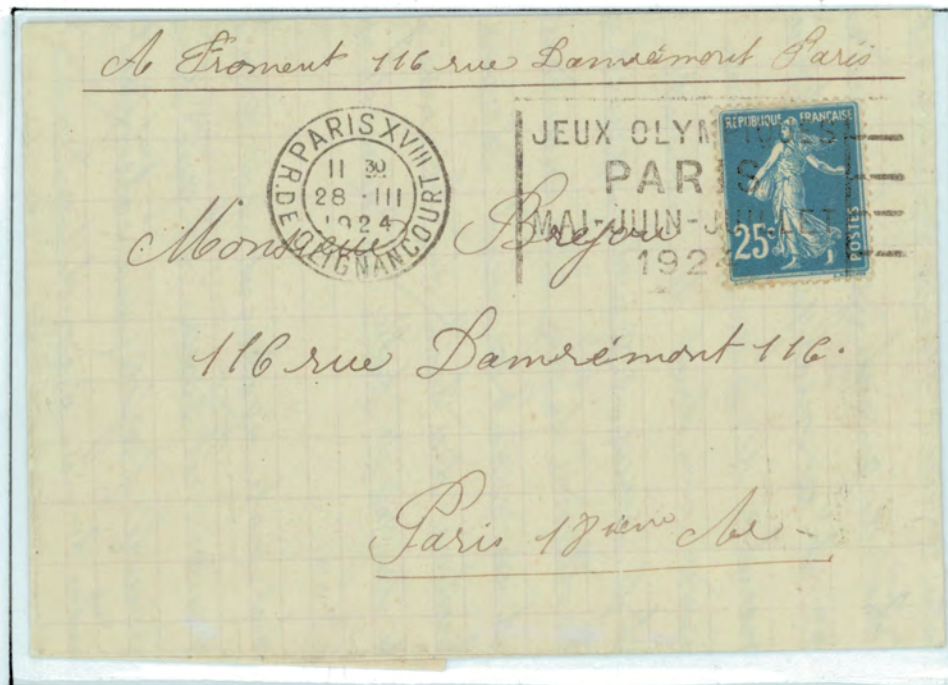 A Froment 116 rue Damrémont Paris
PARIS XVIII
R. DE CLIGNANCOURT
11 30
28 · III
1924
JEUX OLYMPIQUES
PARIS
MAI-JUIN-JUILLET
1924
REPUBLIQUE FRANÇAISE
25c
POSTES
Monsieur Brejou
116 rue Damrémont 116.
Paris 18ieme Ar -